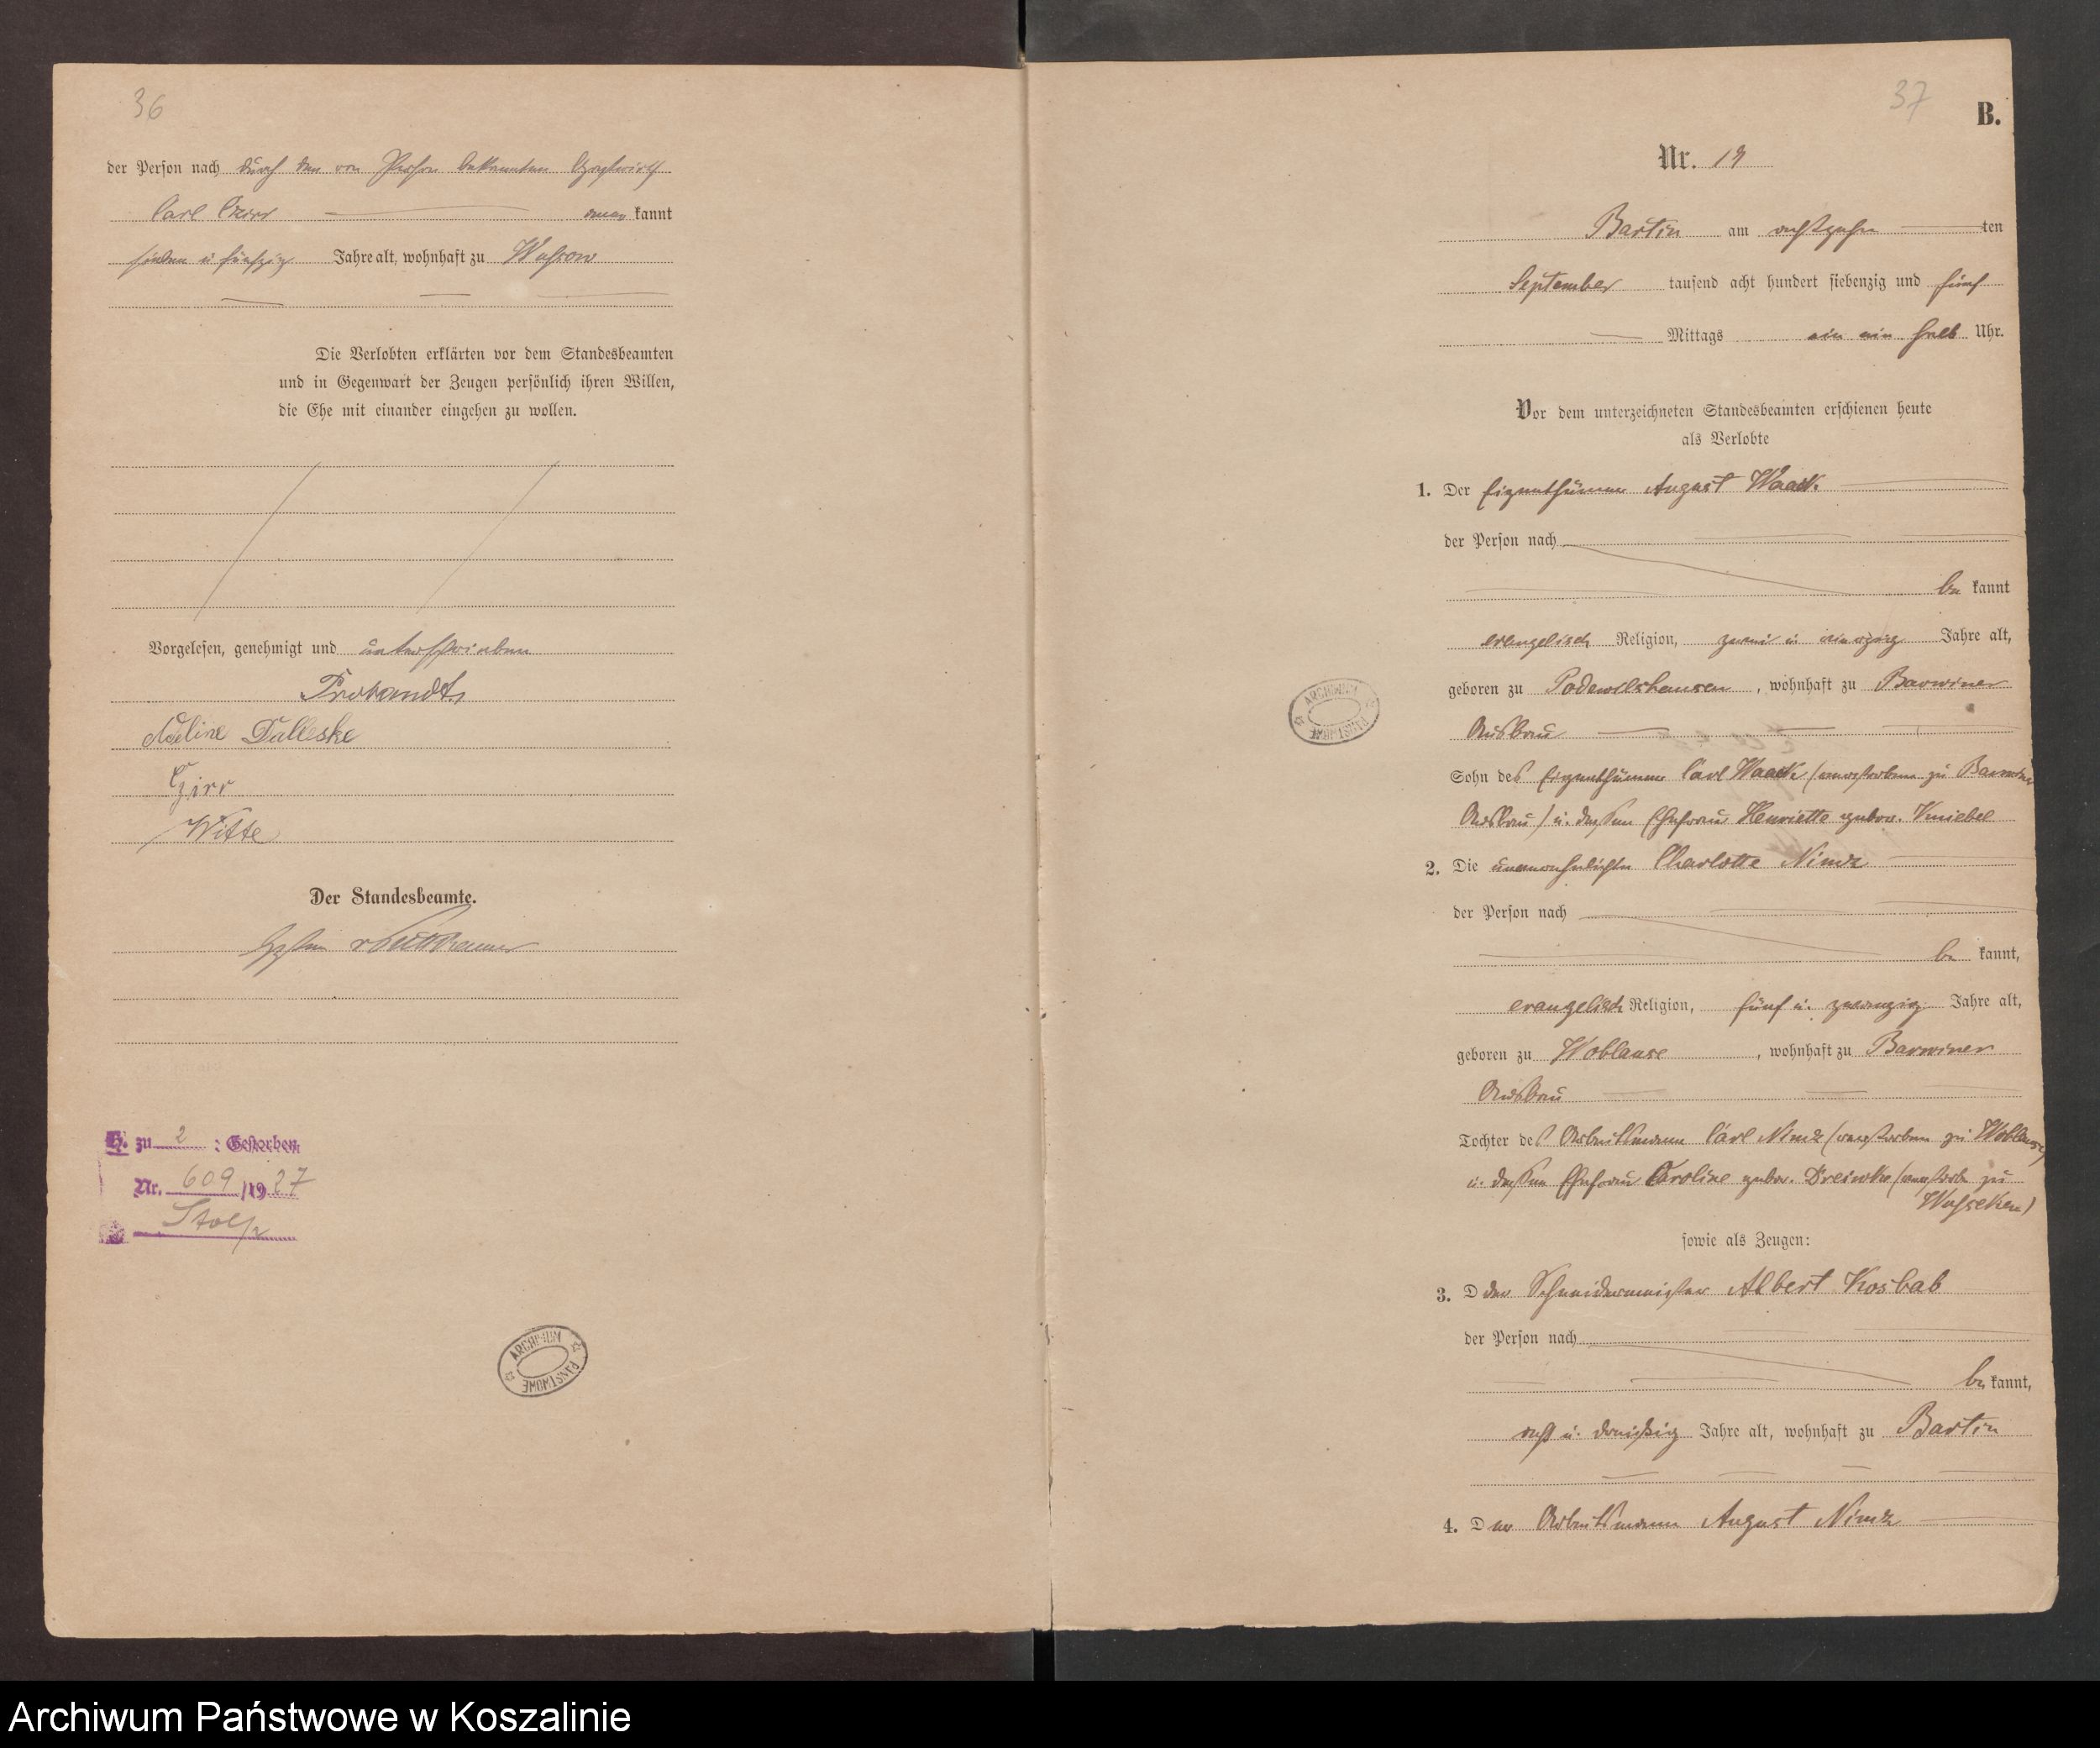 36
der Person nach durch den von Person bekannten Gastwirth
Carl Girr kannt
sieben u fünfzig Jahre alt, wohnhaft zu Wussow
Die Verlobten erklärten vor dem Standesbeamten
und in Gegenwart der Zeugen persönlich ihren Willen,
die Ehe mit einander eingehen zu wollen.
Vorgelesen, genehmigt und unterschrieben
Adeline Talleske
Girr
Witte
Der Standesbeamte.
H. zu 2 : Gestorben
Nr. 609/1927
Stolp
ARCHIWUM PAŃSTWOWE
37
B.
Nr. 19
Bartin am achtzehnten
September tausend acht hundert siebenzig und fünf
Mittags ein ein halb Uhr.
Vor dem unterzeichneten Standesbeamten erschienen heute
als Verlobte
1. Der Eigenthümer August Waack
der Person nach
bekannt
evangelisch Religion, zwei u zwanzig Jahre alt,
geboren zu Podewilshausen, wohnhaft zu Barwiner
Ausbau
Sohn des Eigenthümer Carl Waack (verstorben zu Barwiner
Ausbau) u. dessen Ehefrau Henriette gebor. Kniebel
2. Die unverehelichte Charlotte Nimz
der Person nach
bekannt,
evangelisch Religion, fünf u. zwanzig Jahre alt,
geboren zu Woblanse, wohnhaft zu Barwiner
Ausbau
Tochter des Arbeitsmann Carl Nimz (verstorben zu Woblanse)
u. dessen Ehefrau Caroline gebor. Dreiwke (verstorb. zu
Wusseken)
sowie als Zeugen:
3. Dder Schneidermeister Albert Kosbab
der Person nach
bekannt,
acht u. dreißig Jahre alt, wohnhaft zu Bartin
4. Der Arbeitsmann August Nimz
ARCHIWUM PAŃSTWOWE
Archiwum Państwowe w Koszalinie